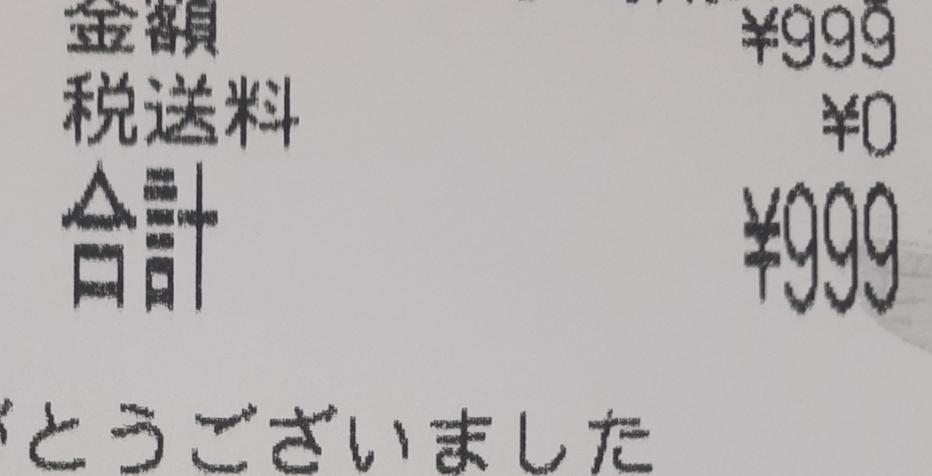 金額 ¥999
税送料 ¥0
合計 ¥999
がとうございました